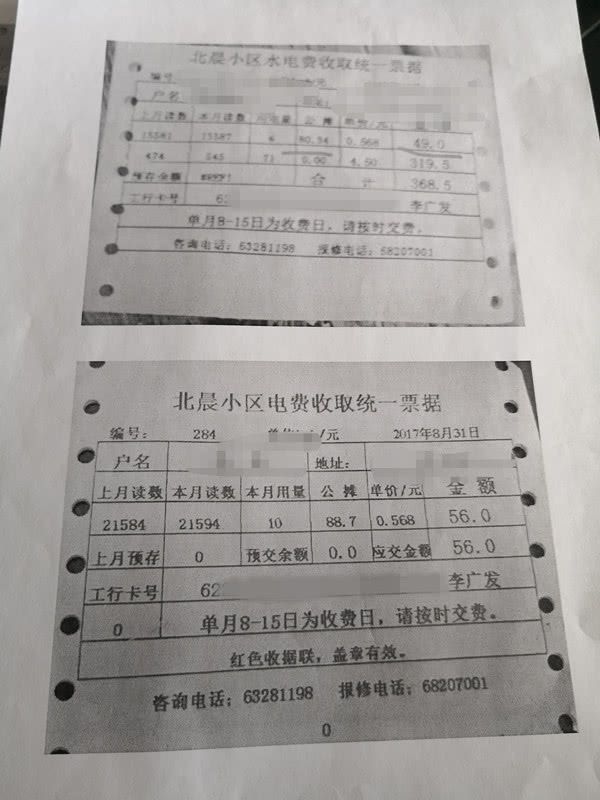 北晨小区水电费收取统一票据
编号 /元
户名
上月读数 本月读数 公摊 单价/元
15581 15587 6 80.34 0.568 49.0
474 545 71 0.00 4.50 319.5
预存金额 合计 368.5
工行卡号 62 李广发
单月8-15日为收费日，请按时交费。
咨询电话：63281198 报修电话：68207001
北晨小区电费收取统一票据
编号： 284 /元 2017年8月31日
户名 地址：
上月读数 本月读数 本月用量 公摊 单价/元 金额
21584 21594 10 88.7 0.568 56.0
上月预存 0 预交余额 0.0 应交金额 56.0
工行卡号 62 李广发
0 单月8-15日为收费日，请按时交费。
红色收据联，盖章有效。
咨询电话：63281198 报修电话：68207001
0